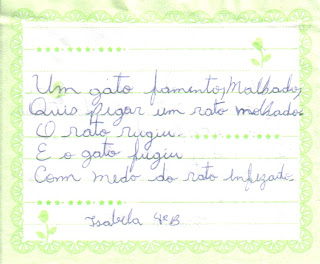 Um gato famento, Malhado,
Quis pegar um rato molhado.
O rato rugiu
E o gato fugiu
Com medo do rato infezado.
Isabela 4ªB